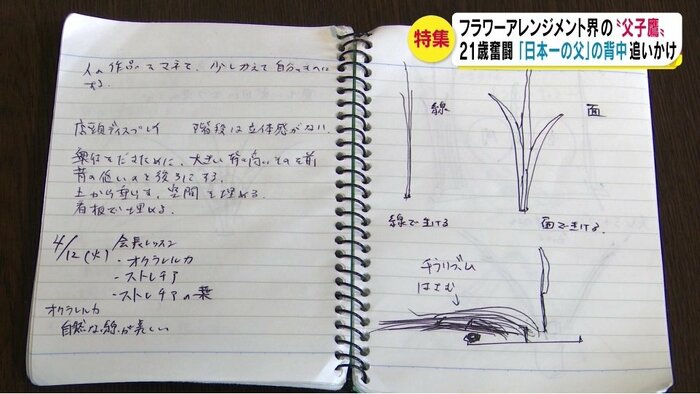 特集
フラワーアレンジメント界の〝父子鷹〟
21歳奮闘「日本一の父」の背中追いかけ
人の作品をマネて、少しかえて自分のものに
する。
店頭ディスプレイ 階段は立体感がない
奥行をだすために、大きい背の高いものを前
背の低いのを後ろにする。
上から垂らす、空間を埋める。
看板で埋める。
4/12(火) 会長レッスン
・オクラレルカ
・ストレチア
・ストレチアの葉
オクラレルカ
自然な線が美しい
線
面
線で生ける
面で生ける
チラリズム
はさむ